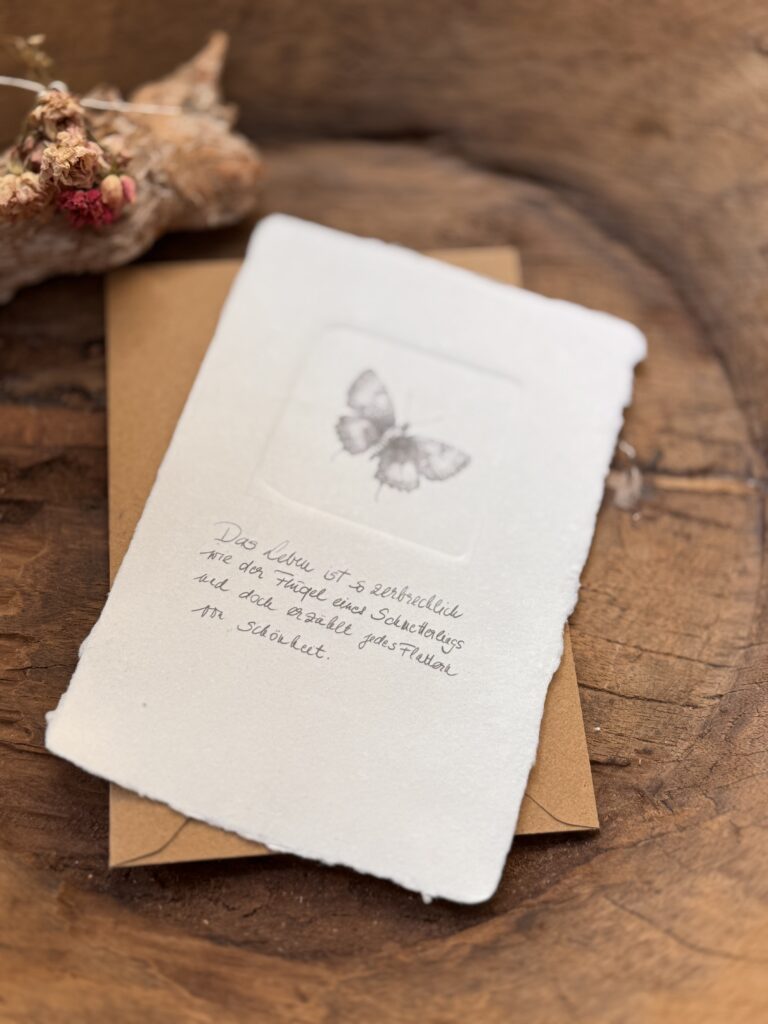 Das Leben ist so zerbrechlich
wie der Flügel eines Schmetterlings
und doch erzählt jedes Flattern
von Schönheit.